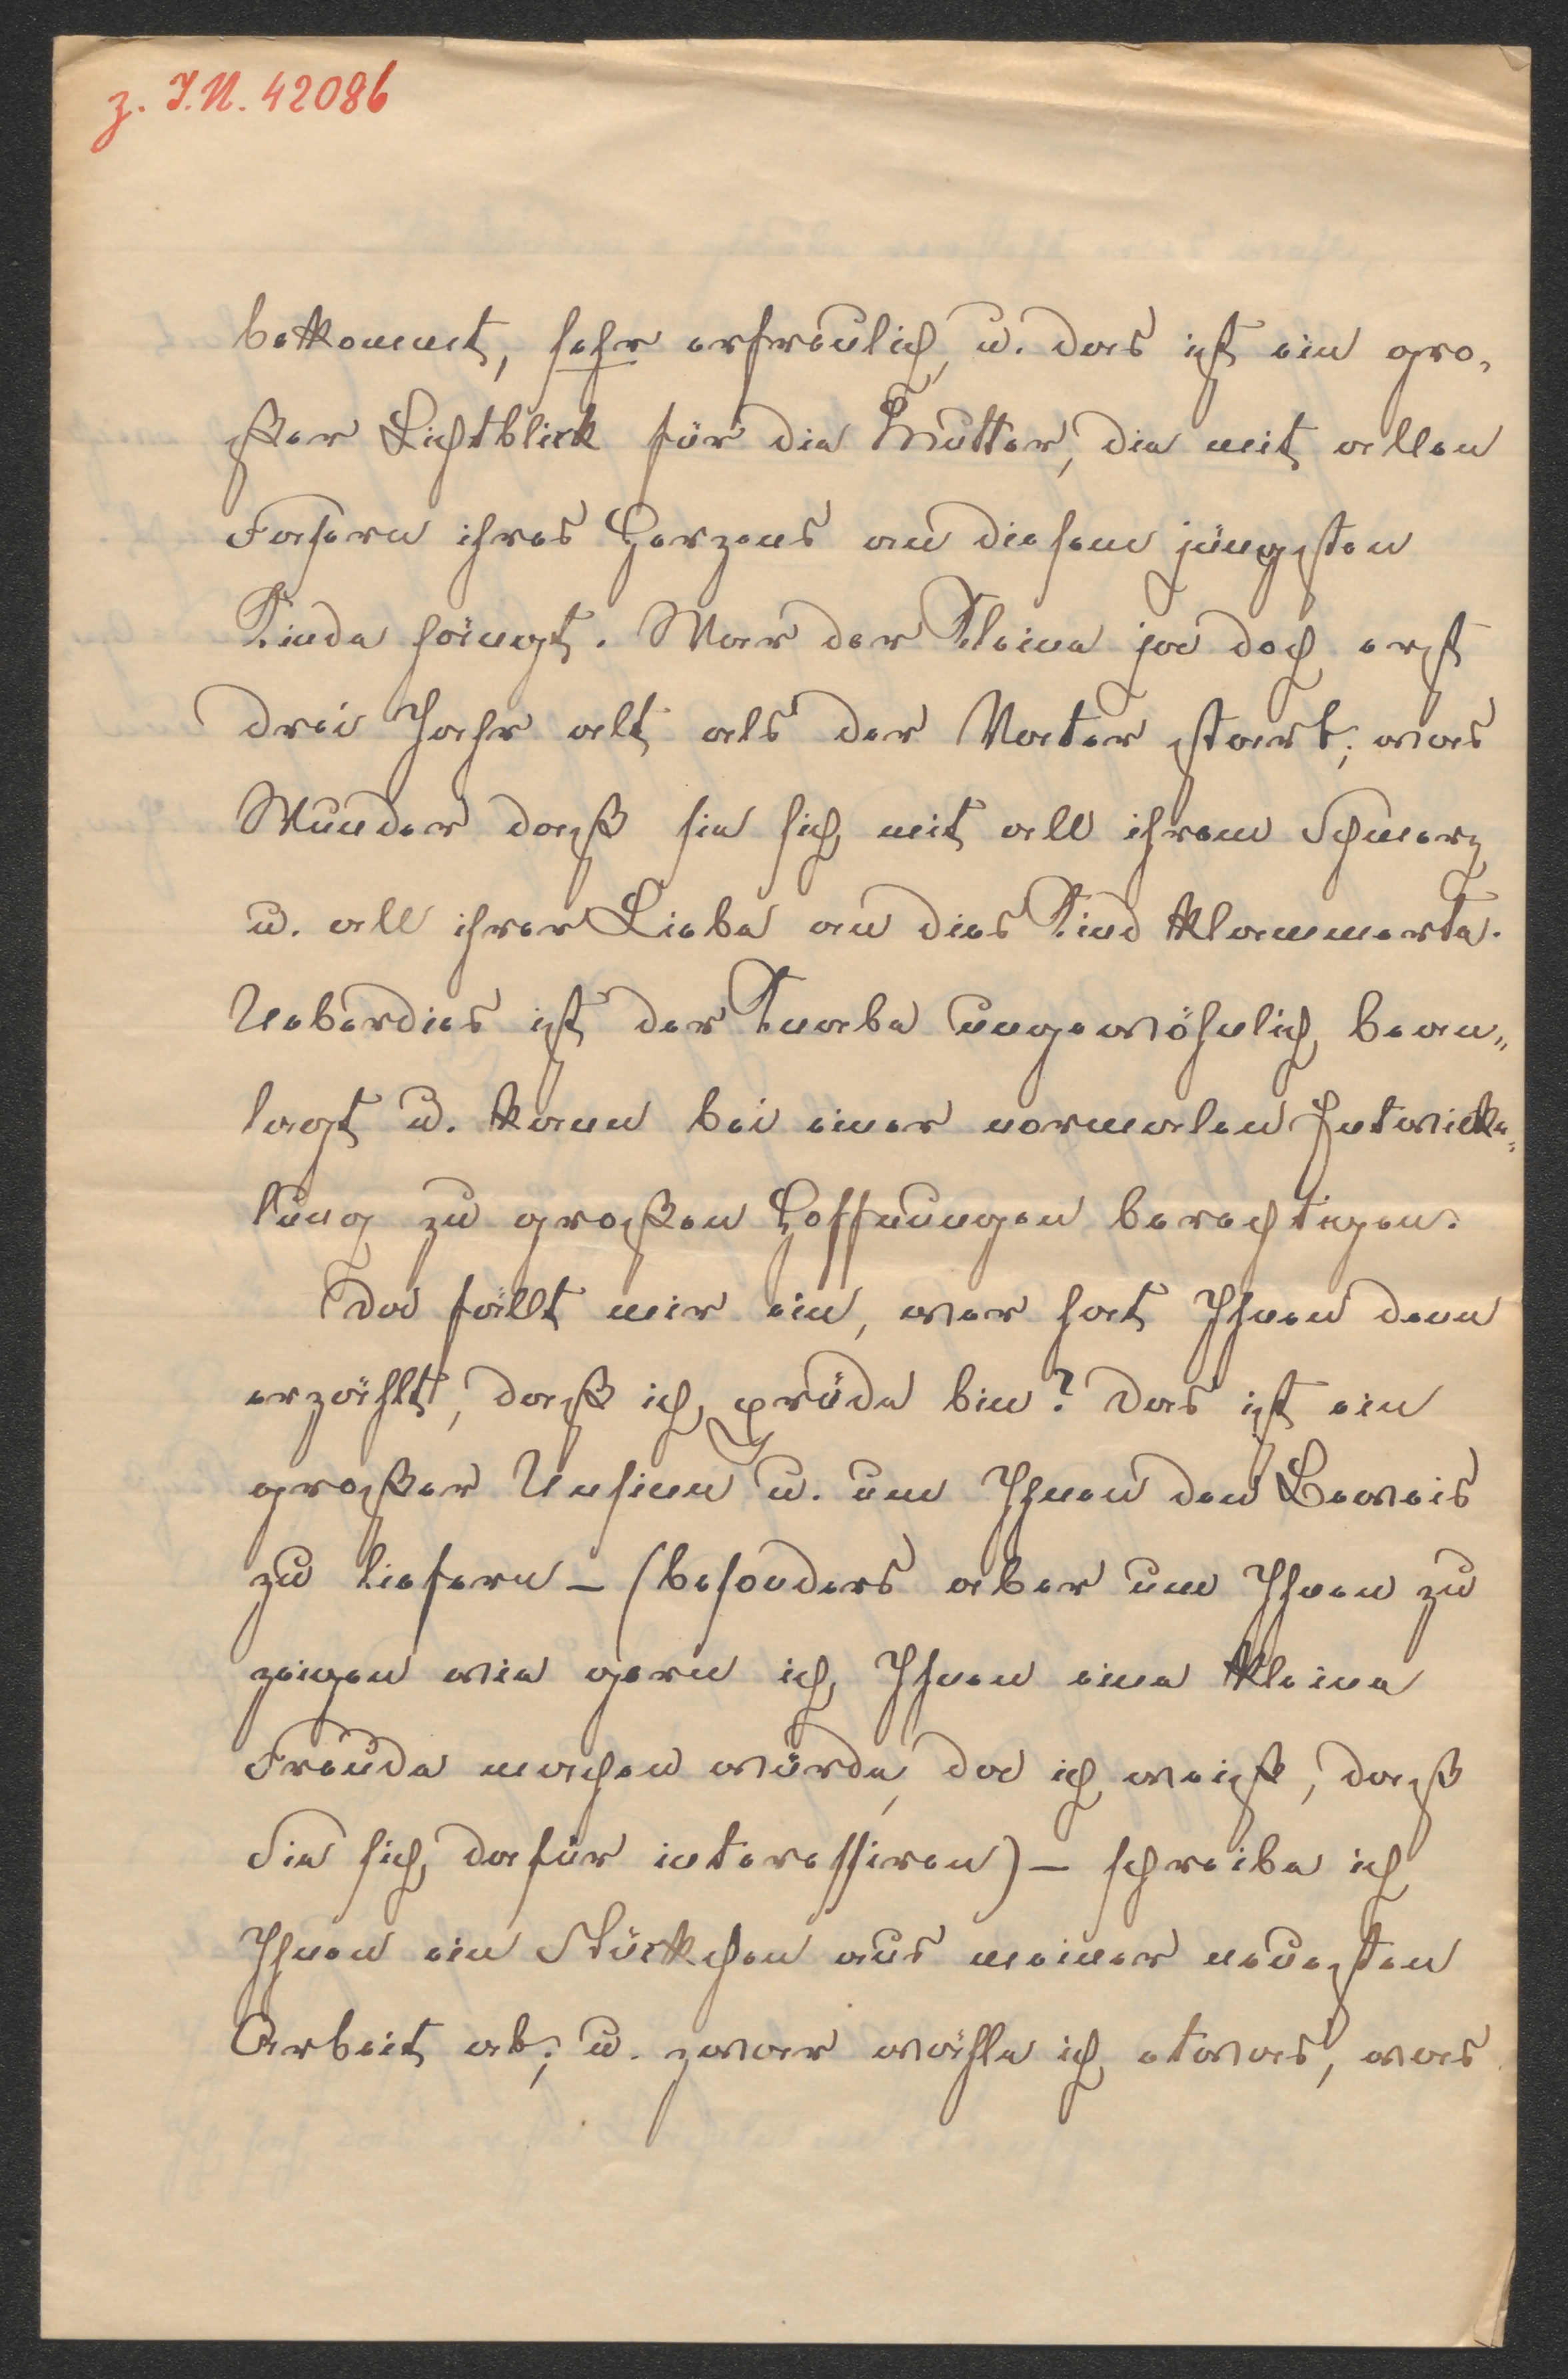 z. I.N. 42086
bekommt, sehr erfreulich, u. das ist ein gro-
ßer Lichtblick für die Mutter, die mit allen
Fasern ihres Herzens an diesem jüngsten
Kinde hängt. War der Kleine ja doch erst
drei Jahr alt als der Vater starb; was
Wunder daß sie sich mit all ihrem Schmerz
u. all ihrer Liebe an dies Kind klammerte.
Ueberdies ist der Knabe ungewöhnlich bean-
lagt u. kann bei einer normalen Entwicke-
lung zu großen Hoffnungen berechtigen.
Da fällt mir ein, wer hat Ihnen denn
erzählt, daß ich prüde bin? Das ist ein
großer Unsinn u. um Ihnen den Beweis
zu liefern – (besonders aber um Ihnen zu
zeigen wie gern ich Ihnen eine kleine
Freude machen würde, da ich weiß, daß
Sie sich dafür interessiren) – schreibe ich
Ihnen ein Stückchen aus meiner neuesten
Arbeit ab; u. zwar wähle ich etwas, was